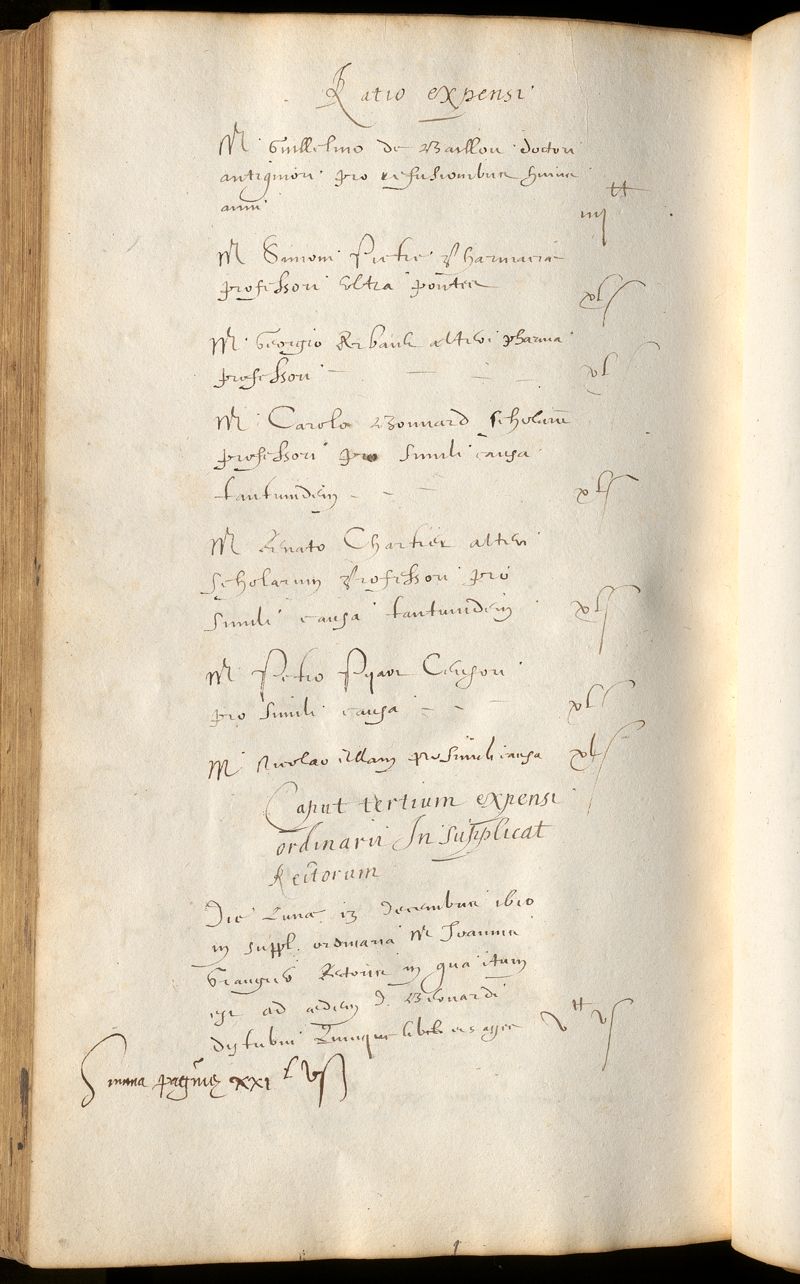 Ratio expensi
M Guillelmo de Baillou doctori
antiquiori pro refusionibus huius
anni
iiij tt
M Simoni Pietre Pharmaciæ
professori ultra pontes
xl s
M Georgio Erbault alteri pharma
professori — — — xl s
M Carolo Bouvard scholarū
professori pro simili causa
tantumdem - - - xl s
M Renato Chartier alteri
scholarum Professori pro
simili causa tantumdem xl s
M Petro Pijart Censori
pro simili causa - - - xl s
M Nicolao Ellain pro simili causa xl s
Caput tertium expensi
ordinarii In supplicat
Rectorum
Die Lunæ 13 decembris 1610
in suppl. ordinaria M Joannis
Grangier Rectoris in qua itum
est ad ædem d.
distribui quinque libras asses v tt v s
Summa paginæ xxi l v s